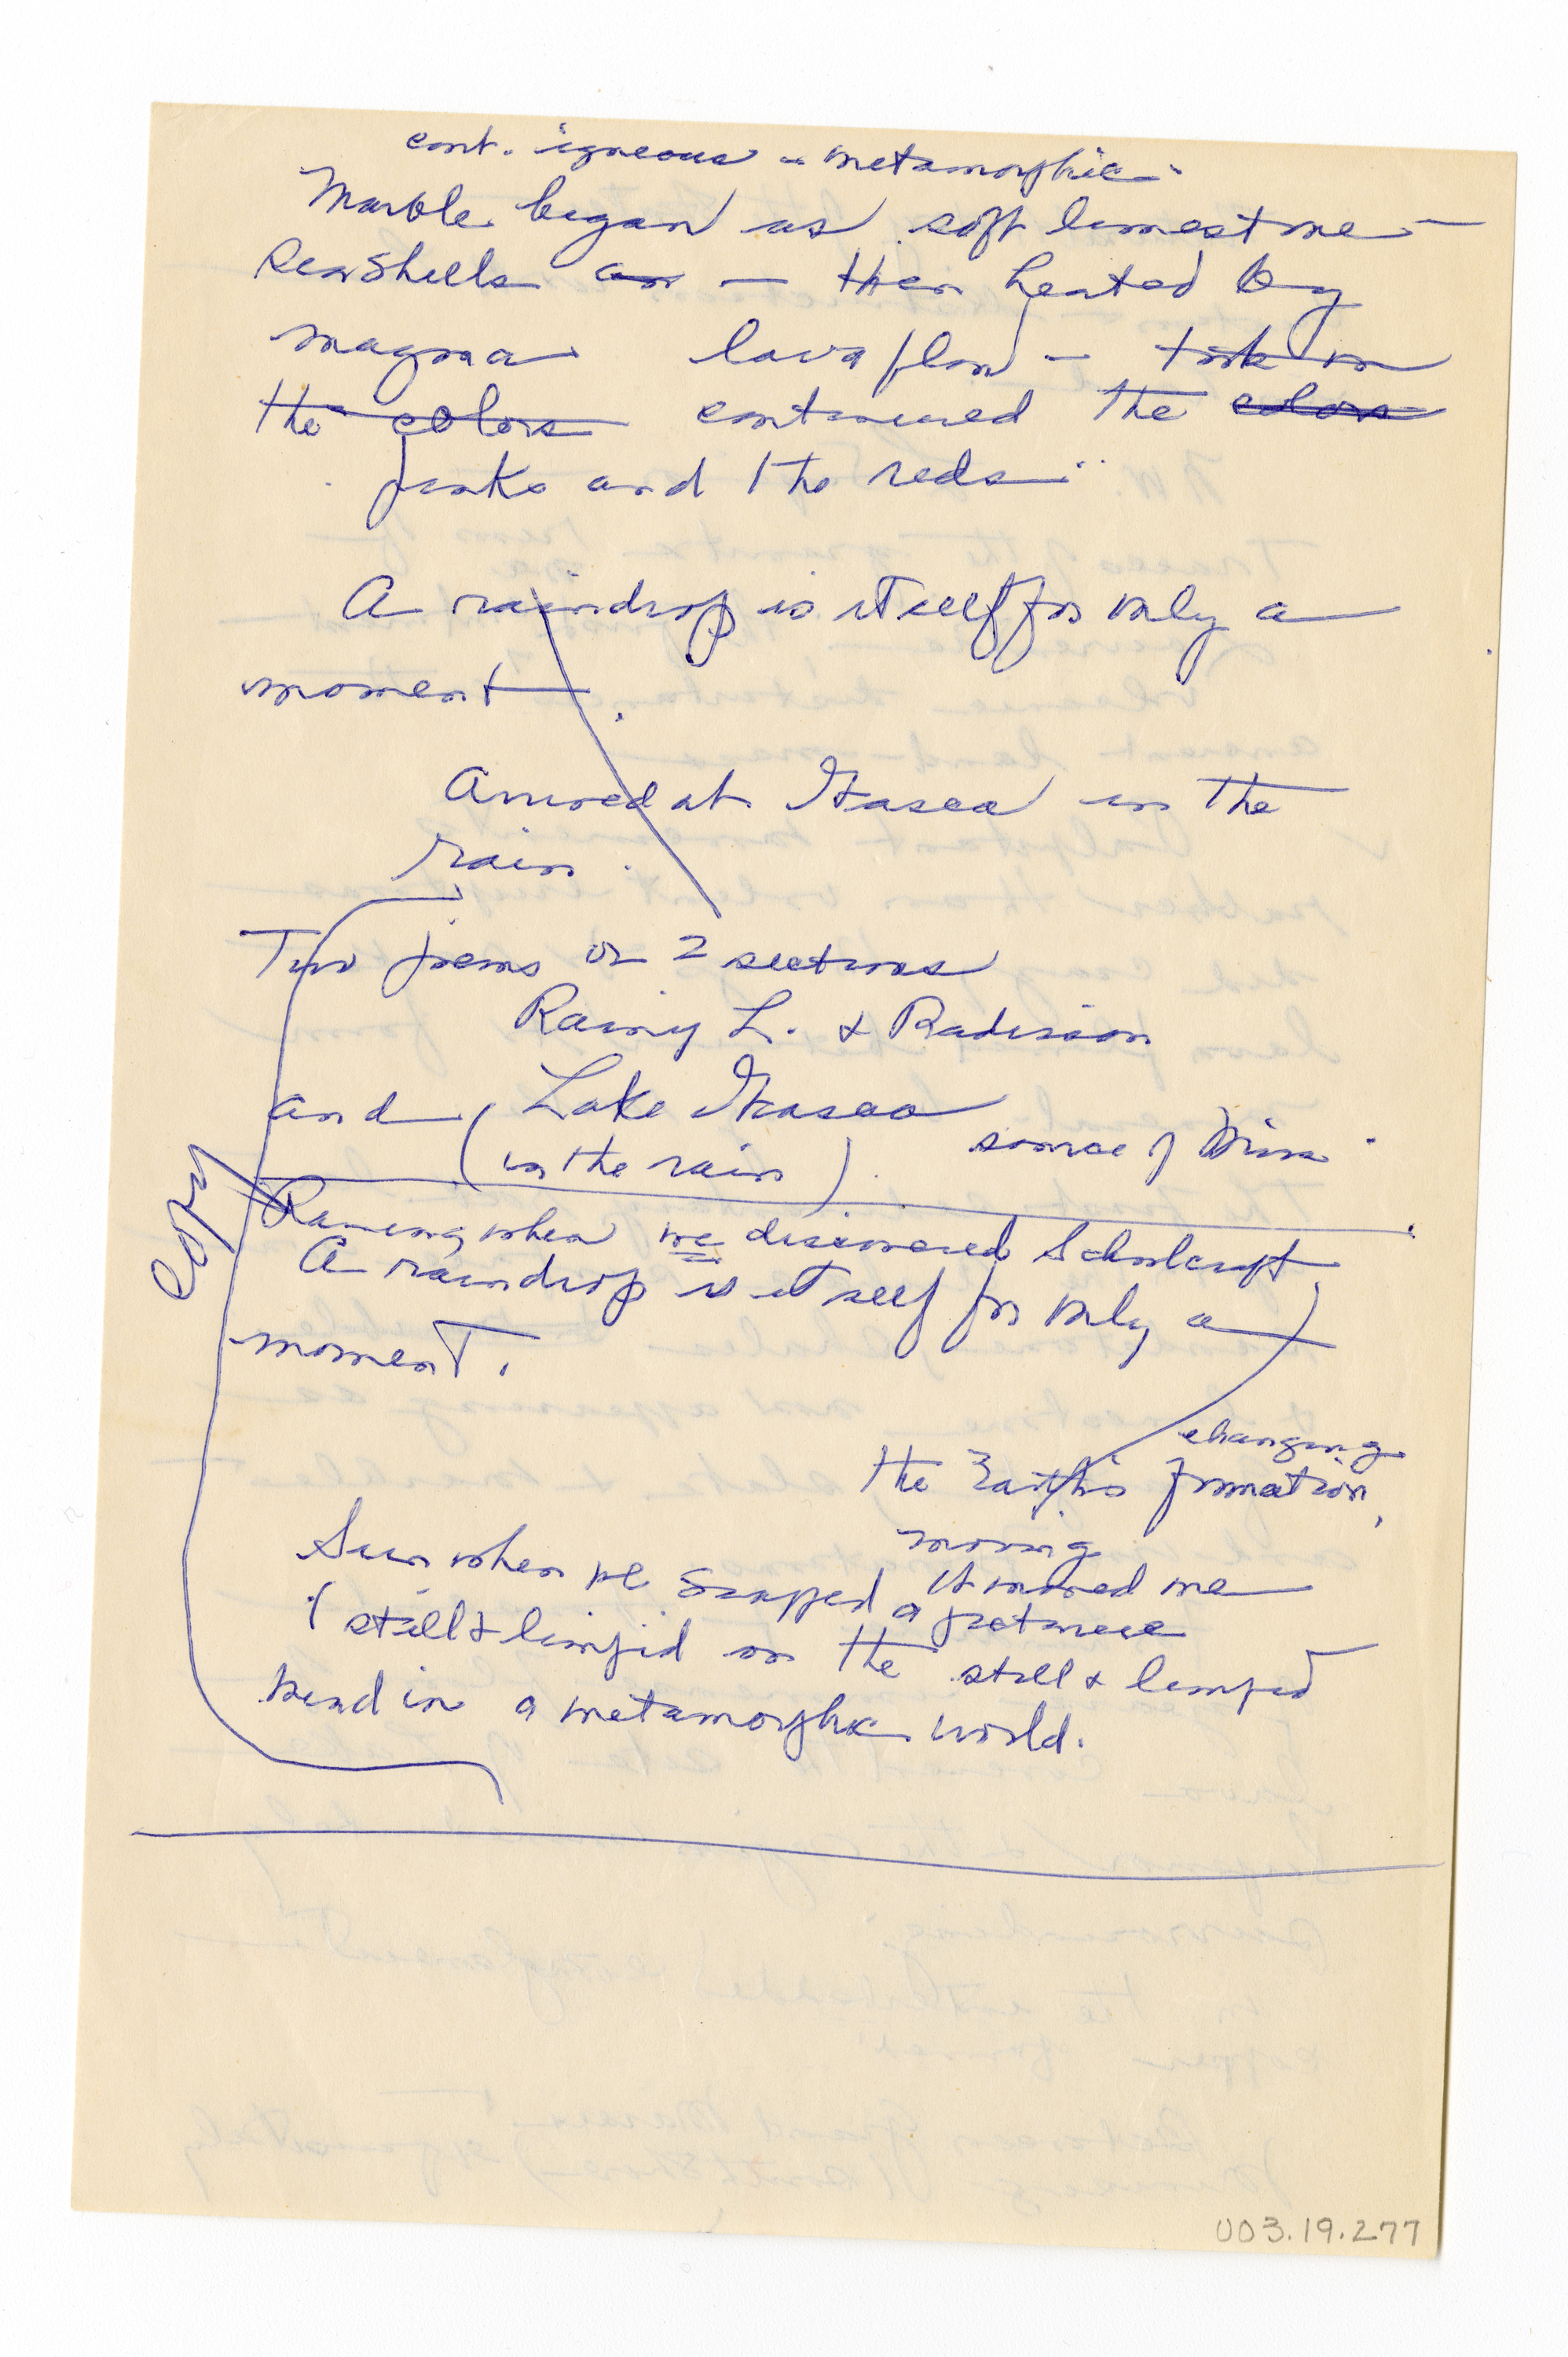 cont. igneous - metamorphic -
Marble began as soft limestone -
Sea Shells an — then heated by
magma lava flow - took on
the colors continued the colors
pinks and the reds -
A raindrop is itself for only a
moment
Arrived at Itasca in the
rain.
Two poems or 2 sections
Rainy L. & Radisson
and (Lake Itasca
(in the rain) source of Miss.
copy
Raining when we discovered Schoolcraft
A raindrop is itself for only a
moment.
changing
the Earth's formation,
moving
Sun when we snapped it moved me
a picture
(still & limpid on the still & limpid
bend in a metamorphic world.
003.19.277